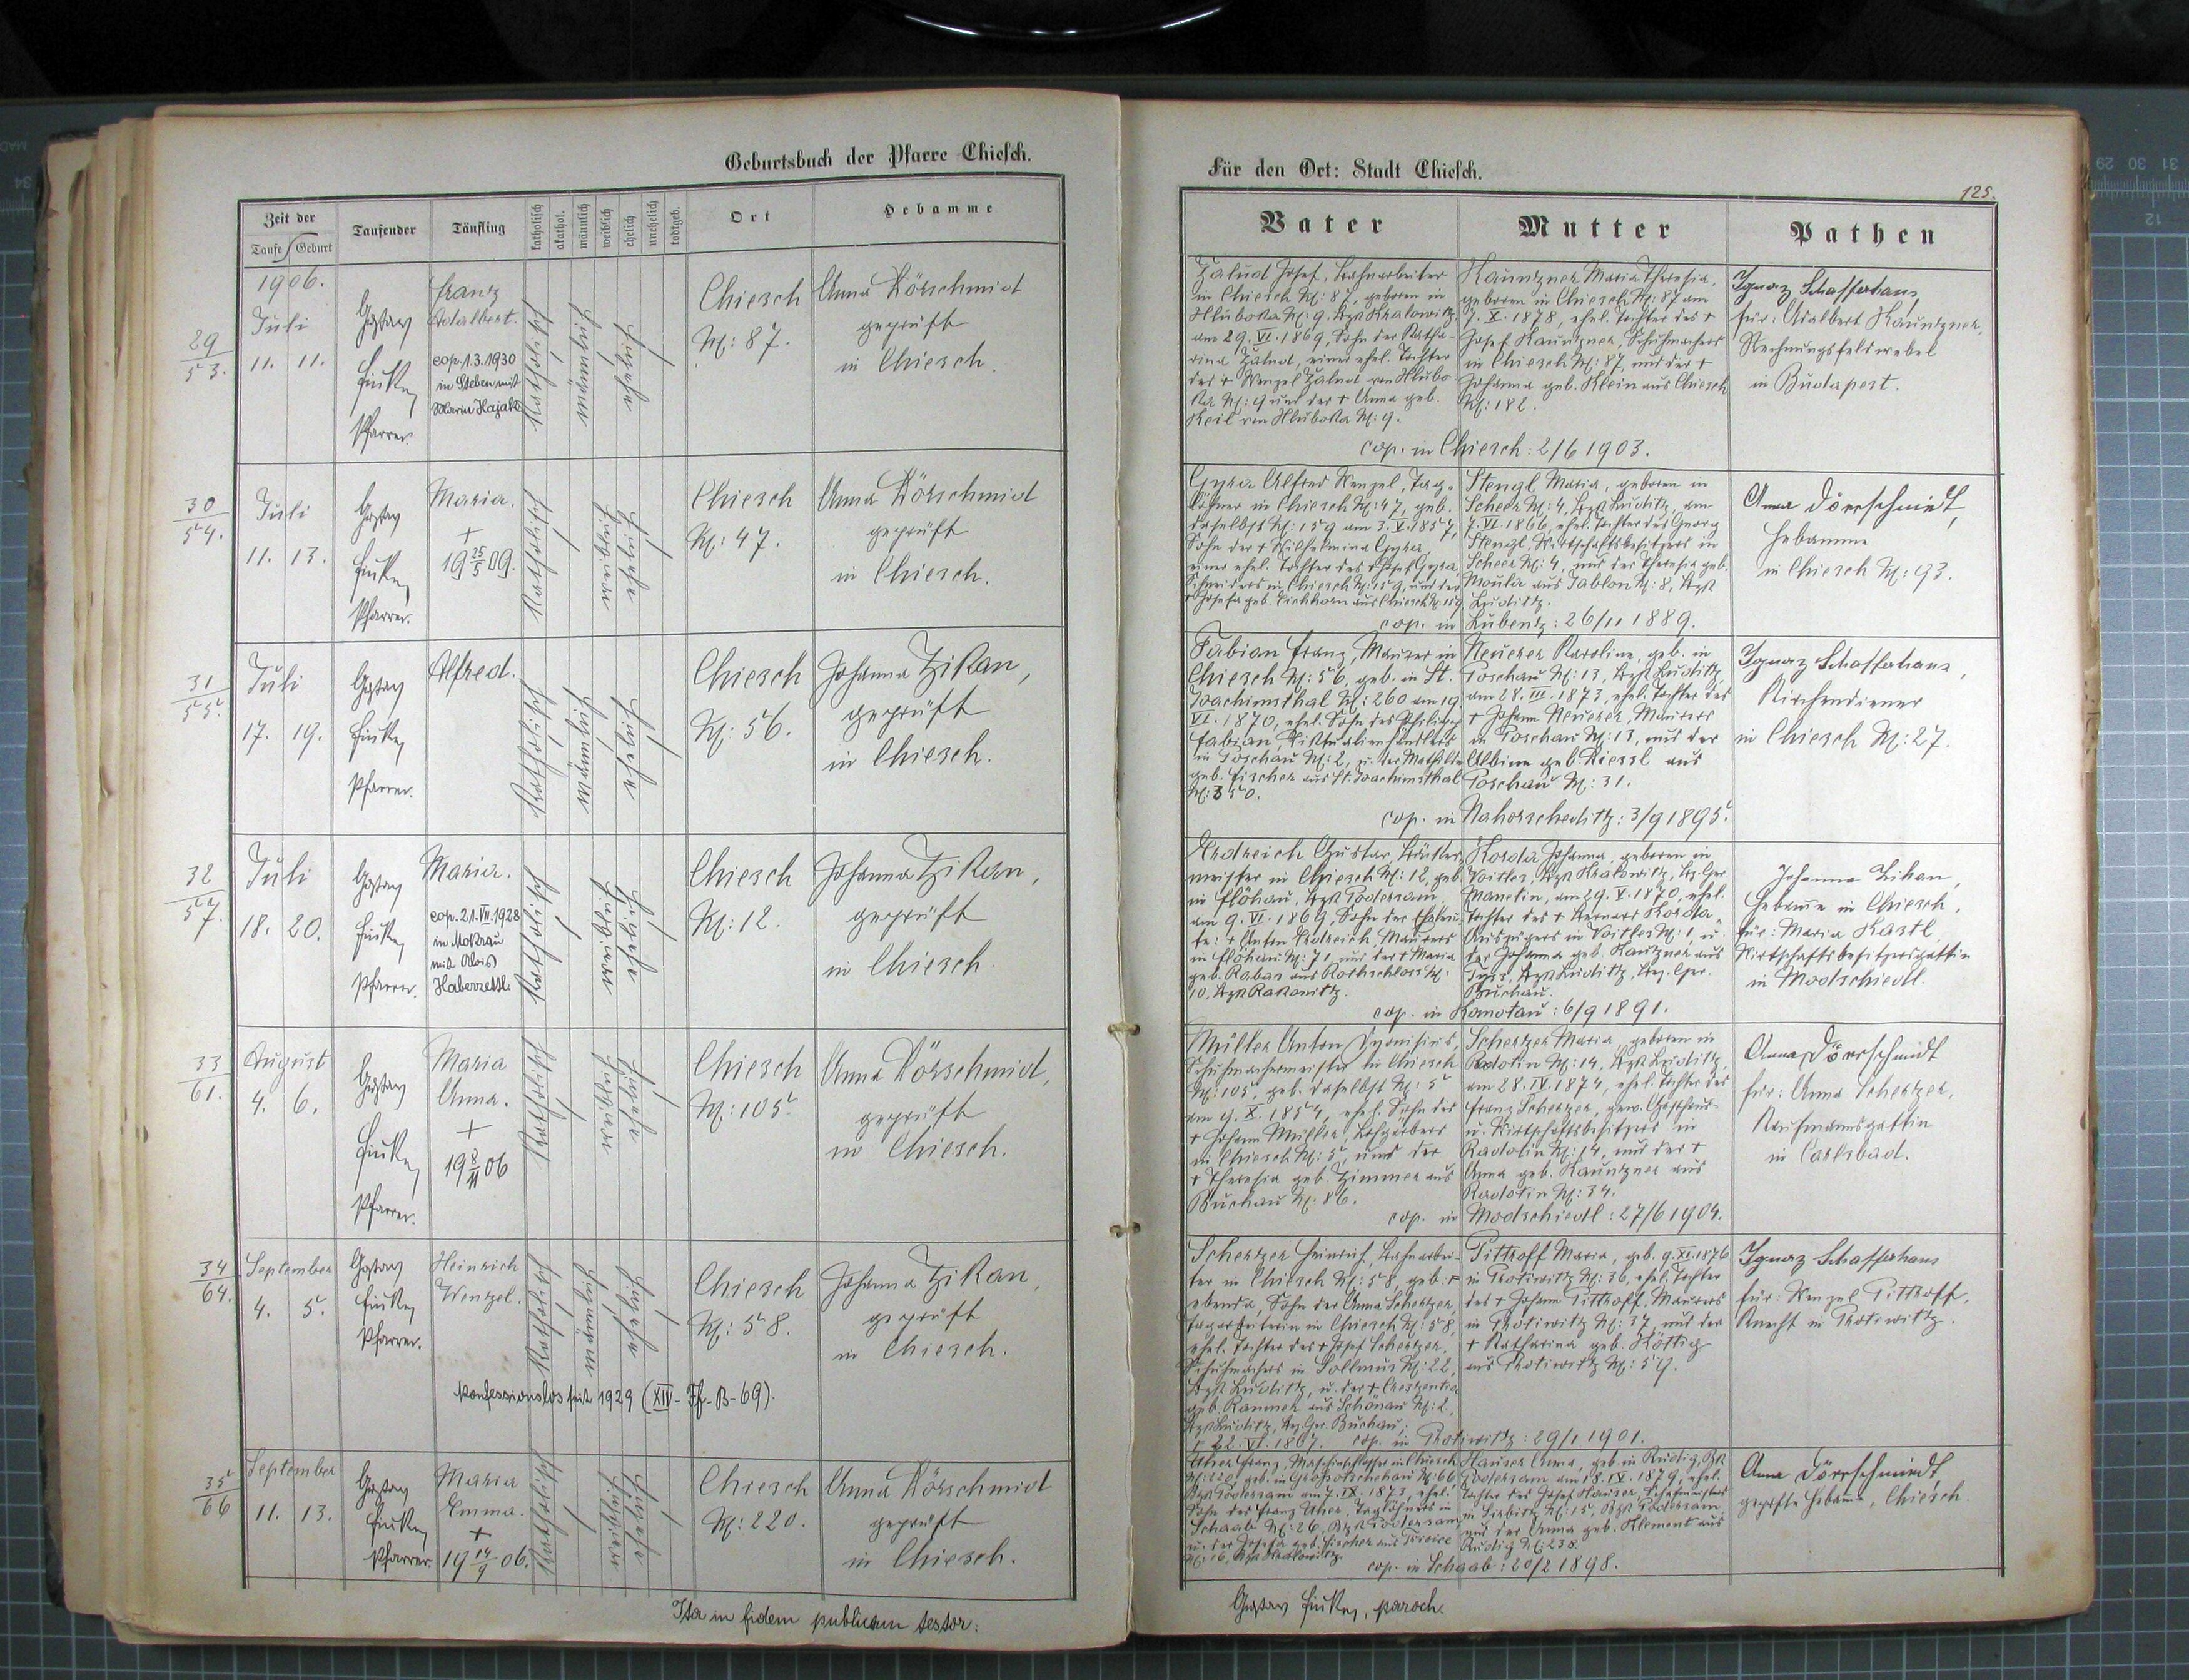 Geburtsbuch der Pfarre Chiesch.
Zeit der
Taufe
Geburt
Taufender
Täufling
katholisch
akathol.
männlich
weiblich
ehelich
unehelich
todtgeb.
Ort
Hebamme
1906.
29
53.
Juli
11. 11.
Gustav
Pfarrer.
Franz
Adalbert.
cop. 1.3.1930
in Steben mit
Maria Hajak
Katholisch
männlich
Ehelich
Chiesch
N: 87.
Anna Dörschmidt
geprüft
in Chiesch.
30
54.
Juli
11. 13.
Gustav
Pfarrer.
Maria.
+
19 25/5 09.
Katholisch
Chiesch
N: 47.
Anna Dörschmid
geprüft
in Chiesch.
31
55.
Juli
17. 19.
Gustav
Pfarrer.
Alfred.
Katholisch
Chiesch
N: 56.
Johanna Zikan,
geprüft
in Chiesch.
32
57.
Juli
18. 20.
Gustav
Pfarrer.
Maria.
cop. 21.VII.1928
in Mokrau
mit Alois
Haberzettl.
Katholisch
Chiesch
N: 12.
Johanna Zikan,
geprüft
in Chiesch.
33
61.
August
4. 6.
Gustav
Pfarrer.
Maria
Anna.
+
19 8/11 06
Katholisch
Chiesch
N: 105
Anna Dörschmid,
geprüft
in Chiesch.
34
64.
September
4. 5.
Gustav
Pfarrer.
Heinrich
Wenzel.
Katholisch
Chiesch
N: 58.
Johanna Zikan,
geprüft
in Chiesch.
konfessionslos seit 1929 (XIV-Ff-B-69).
35
66
September
11. 13.
Gustav
Pfarrer.
Maria
Emma.
+
19 14/9 06.
Katholisch
Chiesch
N: 220.
Anna Dörschmidt
geprüft
in Chiesch.
Ita in fidem publicam testor:
Für den Ort: Stadt Chiesch.
125.
Vater
Mutter
Pathen
Žalud Josef, Bahnarbeiter
in Chiesch N: 87, geboren in
Hluboka N: 9, Bzk Kralowitz
am 29. VI. 1869, Sohn der Katha-
rina Žalud, einer ehel. Tochter
des + Wenzel Žalud von Hlubo-
ka N: 9 und der + Anna geb.
Keil von Hluboka N: 9.
Kauntzner Maria Theresia,
geboren in Chiesch N: 87 am
7. X. 1878, ehel. Tochter des +
Josef Kauntzner, Schuhmachers
in Chiesch N: 87, und der +
Johanna geb. Klein aus Chiesch
N: 182.
cop. in Chiesch: 2/6 1903.
Ignaz Schafferhans,
für: Adalbert Kauntzner,
Rechnungsfeldwebel
in Budapest.
Alfred Wenzel, Tag-
löhner in Chiesch N: 47, geb.
daselbst N: 159 am 3. V. 1857,
Sohn der + Wilhelmina
einer ehel. Tochter des + Josef
Schneiders in Chiesch N: 159, und der
+ Josefa geb. Eichhorn aus Chiesch N: 159.
Stengl Maria, geboren in
Scheer N: 4, Bzk Luditz, am
7. VI. 1866, ehel. Tochter des Georg
Stengl, Wirtschaftsbesitzers in
Scheer N: 4, und der Theresia geb.
Moula aus Jablon N: 8, Bzk
Luditz.
cop. in Lubentz: 26/11 1889.
Anna Dörrschmidt,
Hebamme
in Chiesch N: 93.
Fabian Franz, Maurer in
Chiesch N: 56, geb. in St.
Joachimsthal N: 260 am 19.
VI. 1870, ehel. Sohn des Philipp
Fabian, Viktualienhändlers
in Poschau N: 2, u. der Mathilde
geb. Fischer aus St. Joachimsthal
N: 350.
Neuerer Karoline, geb. in
Poschau N: 13, Bzk Luditz,
am 28. III. 1873, ehel. Tochter des
+ Johann Neuerer, Maurers
in Poschau N: 13, und der
Albine geb. Riessl aus
Poschau N: 31.
cop. in Nahorscheditz: 3/9 1895.
Ignaz Schafferhans,
Kirchendiener
in Chiesch N: 27.
Erdreich Gustav,
meister in Chiesch N: 12, geb.
in Flöhau, Bzk Podersam,
am 9. VI. 1869, Sohn der Eheleu-
te: + Anton Erdreich, Maurers
in Flöhau N: 71, und der + Maria
geb. Rabas aus Rothschloss N:
10, Bzk Rakonitz.
Korda Johanna, geboren in
Voitles, Bzk Kralowitz, Bz. Ger.
Manetin, am 29. V. 1870, ehel.
Tochter des + Bernard Korda,
Auszügers in Voitles N: 1, u.
der Johanna geb. Kautzner aus
Tyss, Bzk Luditz, Bez. Ger.
Buchau.
cop. in Komotau: 6/9 1891.
Johanna Zikan,
Hebamme in Chiesch,
für: Maria Kastl
Wirtschaftsbesitzersgattin
in Modschiedl.
Müller Anton Dyonisius,
Schuhmachermeister in Chiesch
N: 105, geb. daselbst N: 5
am 9. X. 1854, ehel. Sohn des
+ Johann Müller, Lohgärbers
in Chiesch N: 5, und der
+ Theresia geb. Zimmer aus
Buchau N: 86.
Scherzer Maria, geboren in
Radotin N: 14, Bzk Luditz,
am 28. IV. 1874, ehel. Tochter des
Franz Scherzer, gew. Gasthaus-
u. Wirtschaftsbesitzers in
Radotin N: 14, und der +
Anna geb. Kauntzner aus
Radotin N: 34.
cop. in Modschiedl: 27/6 1904.
Anna Dörrschmidt
für: Anna Scherzer,
Kaufmannsgattin
in Carlsbad.
Scherzer Heinrich, Bahnarbei-
ter in Chiesch N: 58, geb. +
ebenda, Sohn der Anna Scherzer,
Tagarbeiterin in Chiesch N: 58,
ehel. Tochter des + Josef Scherzer,
Schuhmachers in Sollmus N: 22,
Bzk Luditz, u. der + Creszentia
geb. Rammer aus Schönau N: 2,
Bzk Luditz, Bz. Ger. Buchau;
+ 22. VI. 1867.
Pittroff Maria, geb. 9. XI. 1876
in Protiwitz N: 36, ehel. Tochter
des + Johann Pittroff, Maurers
in Protiwitz N: 37, und der
+ Katharina geb. Köttig
aus Protiwitz N: 59.
cop. in Protiwitz: 29/1 1901.
Ignaz Schafferhans
für: Wenzel Pittroff,
Knecht in Protiwitz.
Franz, Maschinschlosser in Chiesch
N: 220, geb. in Grossotschehau N: 66
Bzk Podersam am 7. IX. 1873, ehel.
Sohn des Franz Taglöhners in
Schaab N: 26, Bzk Podersam,
u. der Josefa geb. Fischer aus
N: 16, Bzk Kralowitz.
Hauser Anna, geb. in Rudig, Bzk
Podersam am 18. IX. 1879, ehel.
Tochter des Josef Hauser,
N: 15, Bzk Podersam
und der Anna geb. Klement aus
Rudig N: 238.
cop. in Schaab: 20/2 1898.
Anna Dörrschmidt,
geprüfte Hebamme, Chiesch.
Gustav paroch.